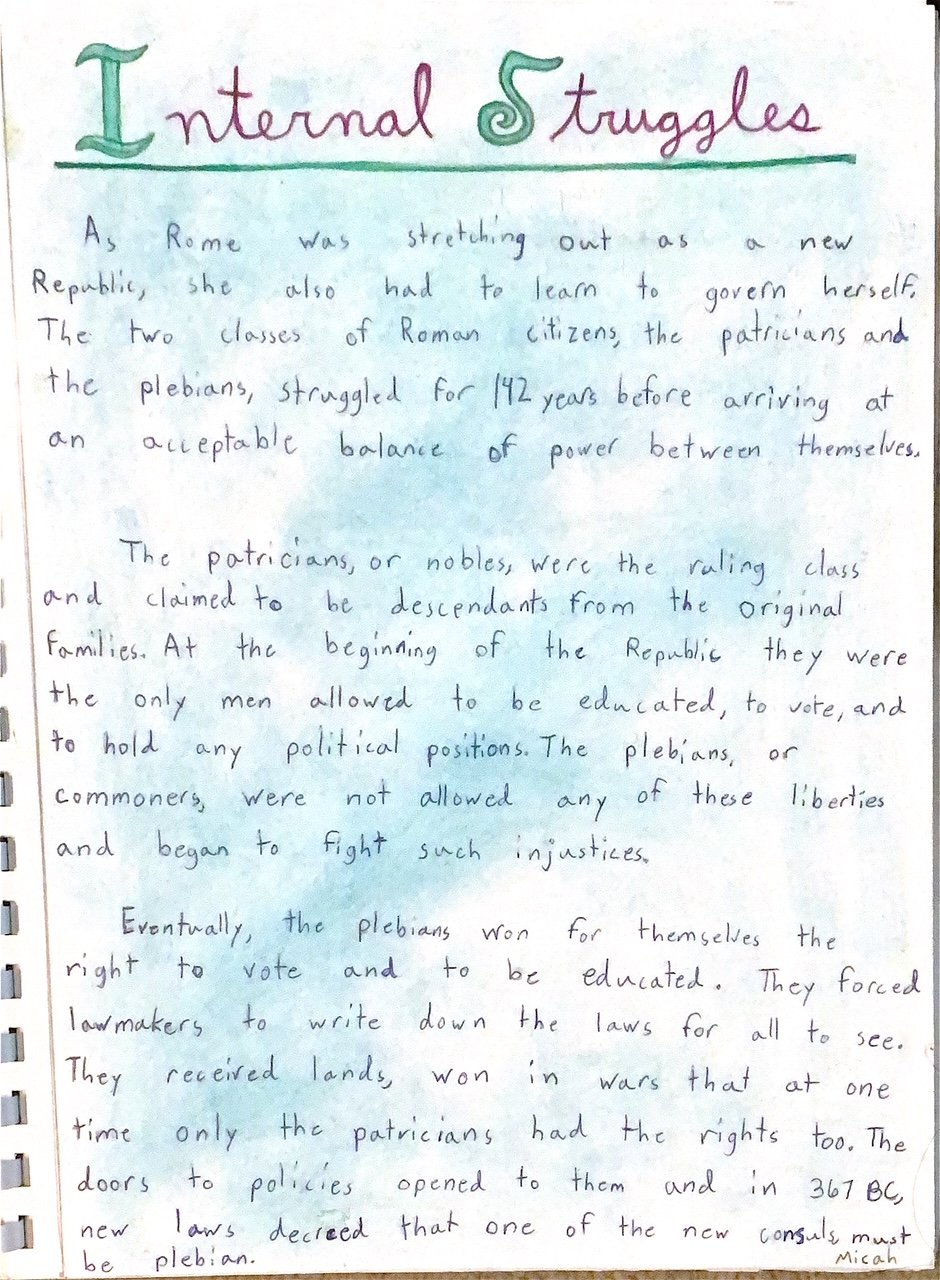 Internal Struggles
As Rome was stretching out as a new
Republic, she also had to learn to govern herself.
The two classes of Roman citizens, the patricians and
the plebians, struggled for 142 years before arriving at
an acceptable balance of power between themselves.
The patricians, or nobles, were the ruling class
and claimed to be descendants from the original
families. At the beginning of the Republic they were
the only men allowed to be educated, to vote, and
to hold any political positions. The plebians, or
commoners, were not allowed any of these liberties
and began to fight such injustices.
Eventually, the plebians won for themselves the
right to vote and to be educated. They forced
lawmakers to write down the laws for all to see.
They received lands, won in wars that at one
time only the patricians had the rights too. The
doors to policies opened to them and in 367 BC,
new laws decreed that one of the new consuls must
be plebian.
Micah